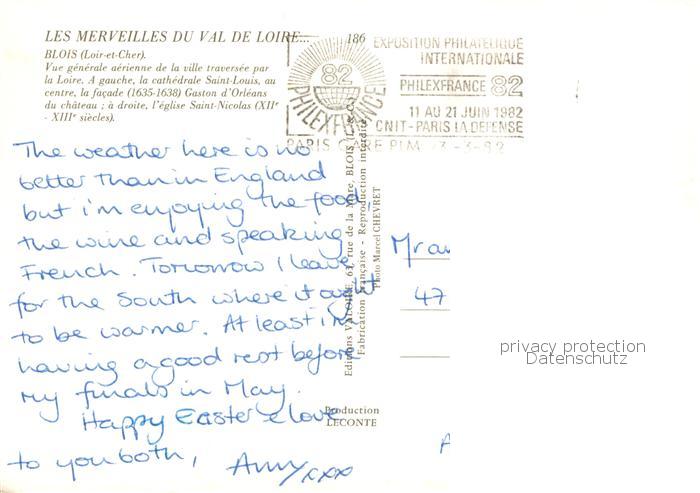 LES MERVEILLES DU VAL DE LOIRE...
186
BLOIS (Loir-et-Cher).
Vue générale aérienne de la ville traversée par
la Loire. A gauche, la cathédrale Saint-Louis, au
centre, la façade (1635-1638) Gaston d'Orléans
du château ; à droite, l'église Saint-Nicolas (XIIe
- XIIIe siècles).
82
PHILEXFRANCE
EXPOSITION PHILATELIQUE
INTERNATIONALE
PHILEXFRANCE 82
11 AU 21 JUIN 1982
CNIT-PARIS LA DEFENSE
PARIS GARE PLM
The weather here is no
better than in England
but i'm enjoying the food,
the wine and speaking
French. Tomorrow I leave
for the South where it ought
to be warmer. At least i'm
having a good rest before
my finals in May.
Happy Easter & love
to you both,
Amy xxx
Editions VALOIRE, 63, rue de la Mare, BLOIS
Fabrication Française - Reproduction interdite
Photo Marcel CHEVRET
Production
LECONTE
Mr
47
A
privacy protection
Datenschutz